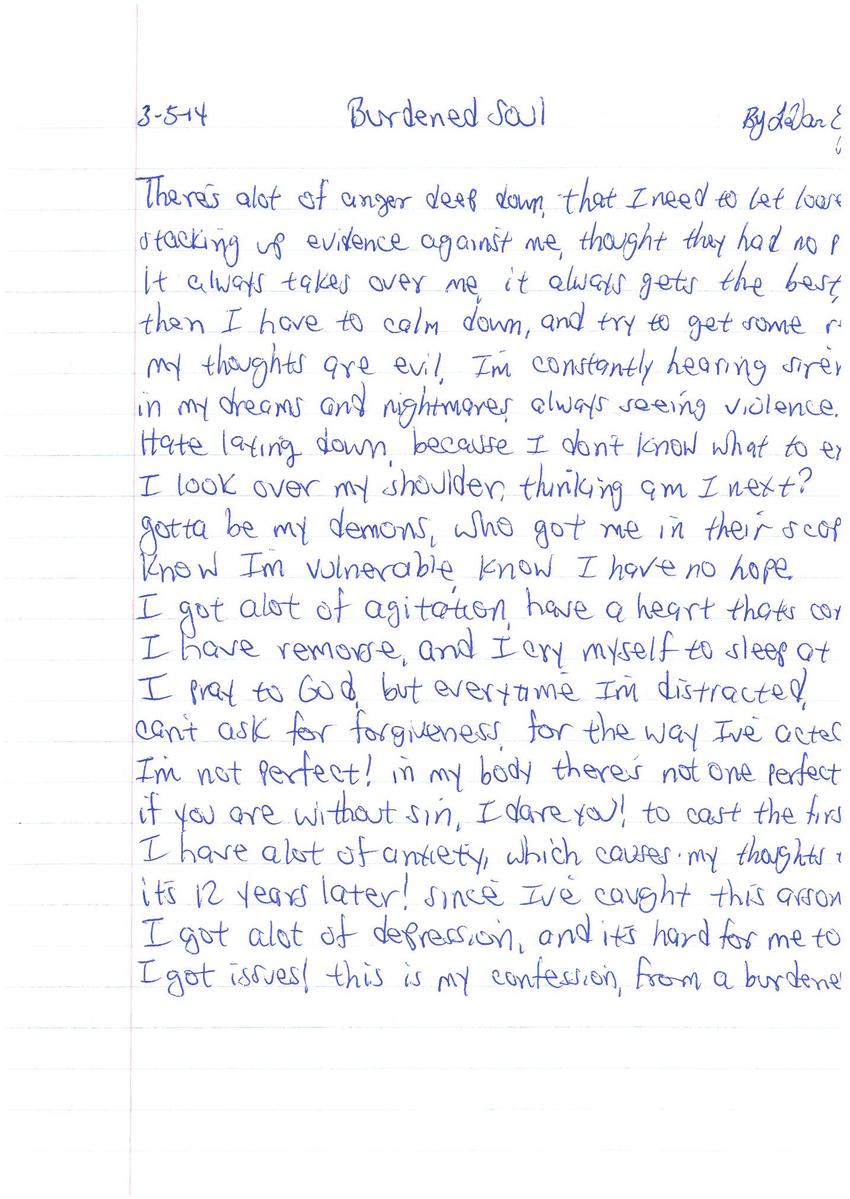 3-5-14 Burdened Soul By LaVar
There's alot of anger deep down, that I need to let loose
stacking up evidence against me, thought they had no
It always takes over me, it always gets the best,
then I have to calm down, and try to get some
my thoughts are evil, I'm constantly hearing
in my dreams and nightmares, always seeing violence.
Hate laying down, because I don't know what to
I look over my shoulder, thinking am I next?
gotta be my demons, who got me in their
Know I'm vulnerable, know I have no hope.
I got alot of agitation, have a heart thats
I have remorse, and I cry myself to sleep at
I pray to God, but everytime I'm distracted,
can't ask for forgiveness, for the way I've acted
I'm not perfect! in my body there's not one perfect
if you are without sin, I dare you! to cast the
I have alot of anxiety, which causes my thoughts
it's 12 years later! since I've caught this arson
I got alot of depression, and it's hard for me to
I got issues! this is my confession, from a